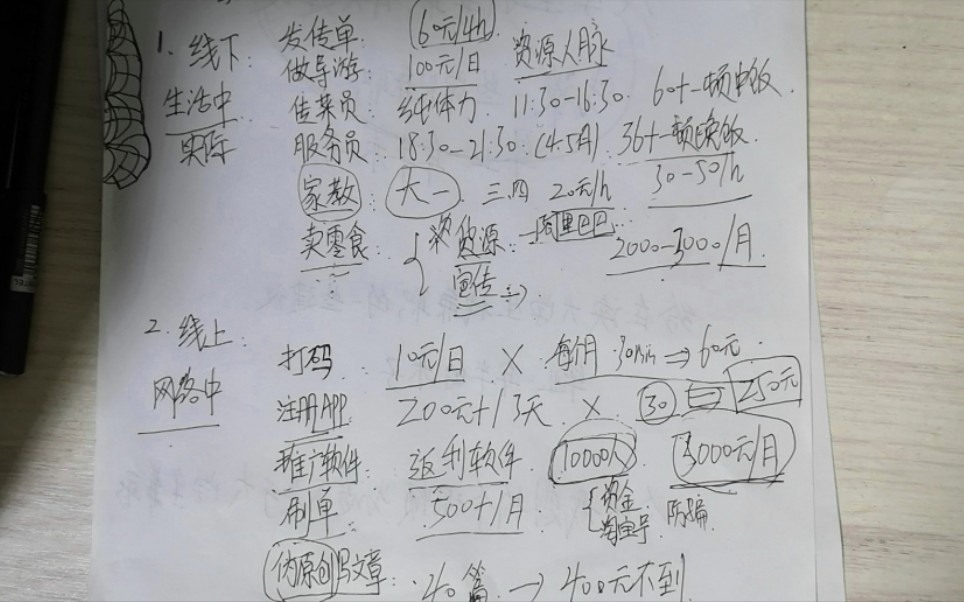 1. 线下 发传单: 60元/4h
做导游: 100元/日 资源人脉
生活中 传菜员: 纯体力 11:30-16:30 60+一顿中饭.
实际 服务员: 18:30-21:30 (4-5月) 36+一顿晚饭.
家教: 大一 三四 20元/h 30-50/h
卖零食: { 货源 - 阿里巴巴 2000-3000/月
宣传
2. 线上: 打码: 10元/日 × 每个月 30min ⇒ 60元
网络中 注册APP 200元+/3天 × 30 250元
推广软件: 返利软件 10000人 3000元/月
刷单 500+/月 { 资金 防骗
淘宝号
伪原创写文章: 40篇 → 400元不到